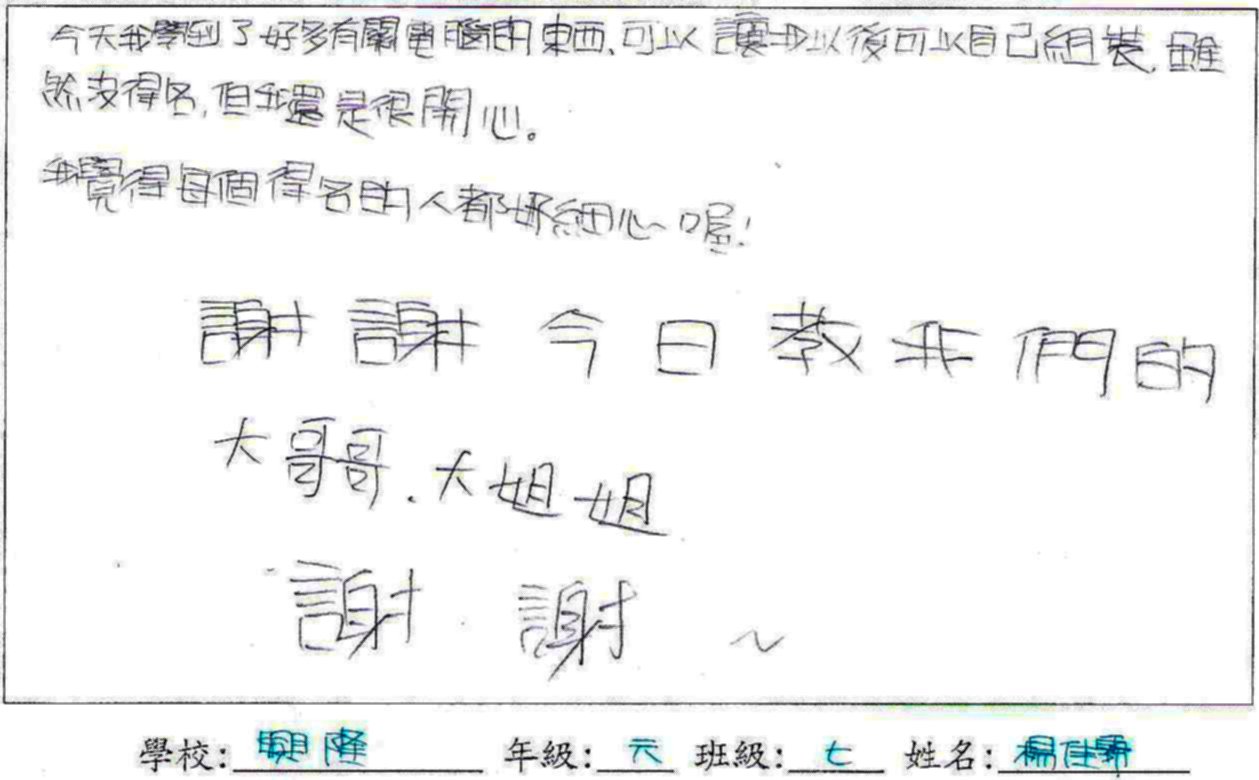 今天我學到了好多有關電腦的東西,可以讓我以後可以自己組裝,雖
然沒得名,但我還是很開心。
我覺得每個得名的人都好細心喔!
謝謝今日教我們的
大哥哥.大姐姐
謝謝~
學校:興隆 年級:六 班級:七 姓名:楊佳霈